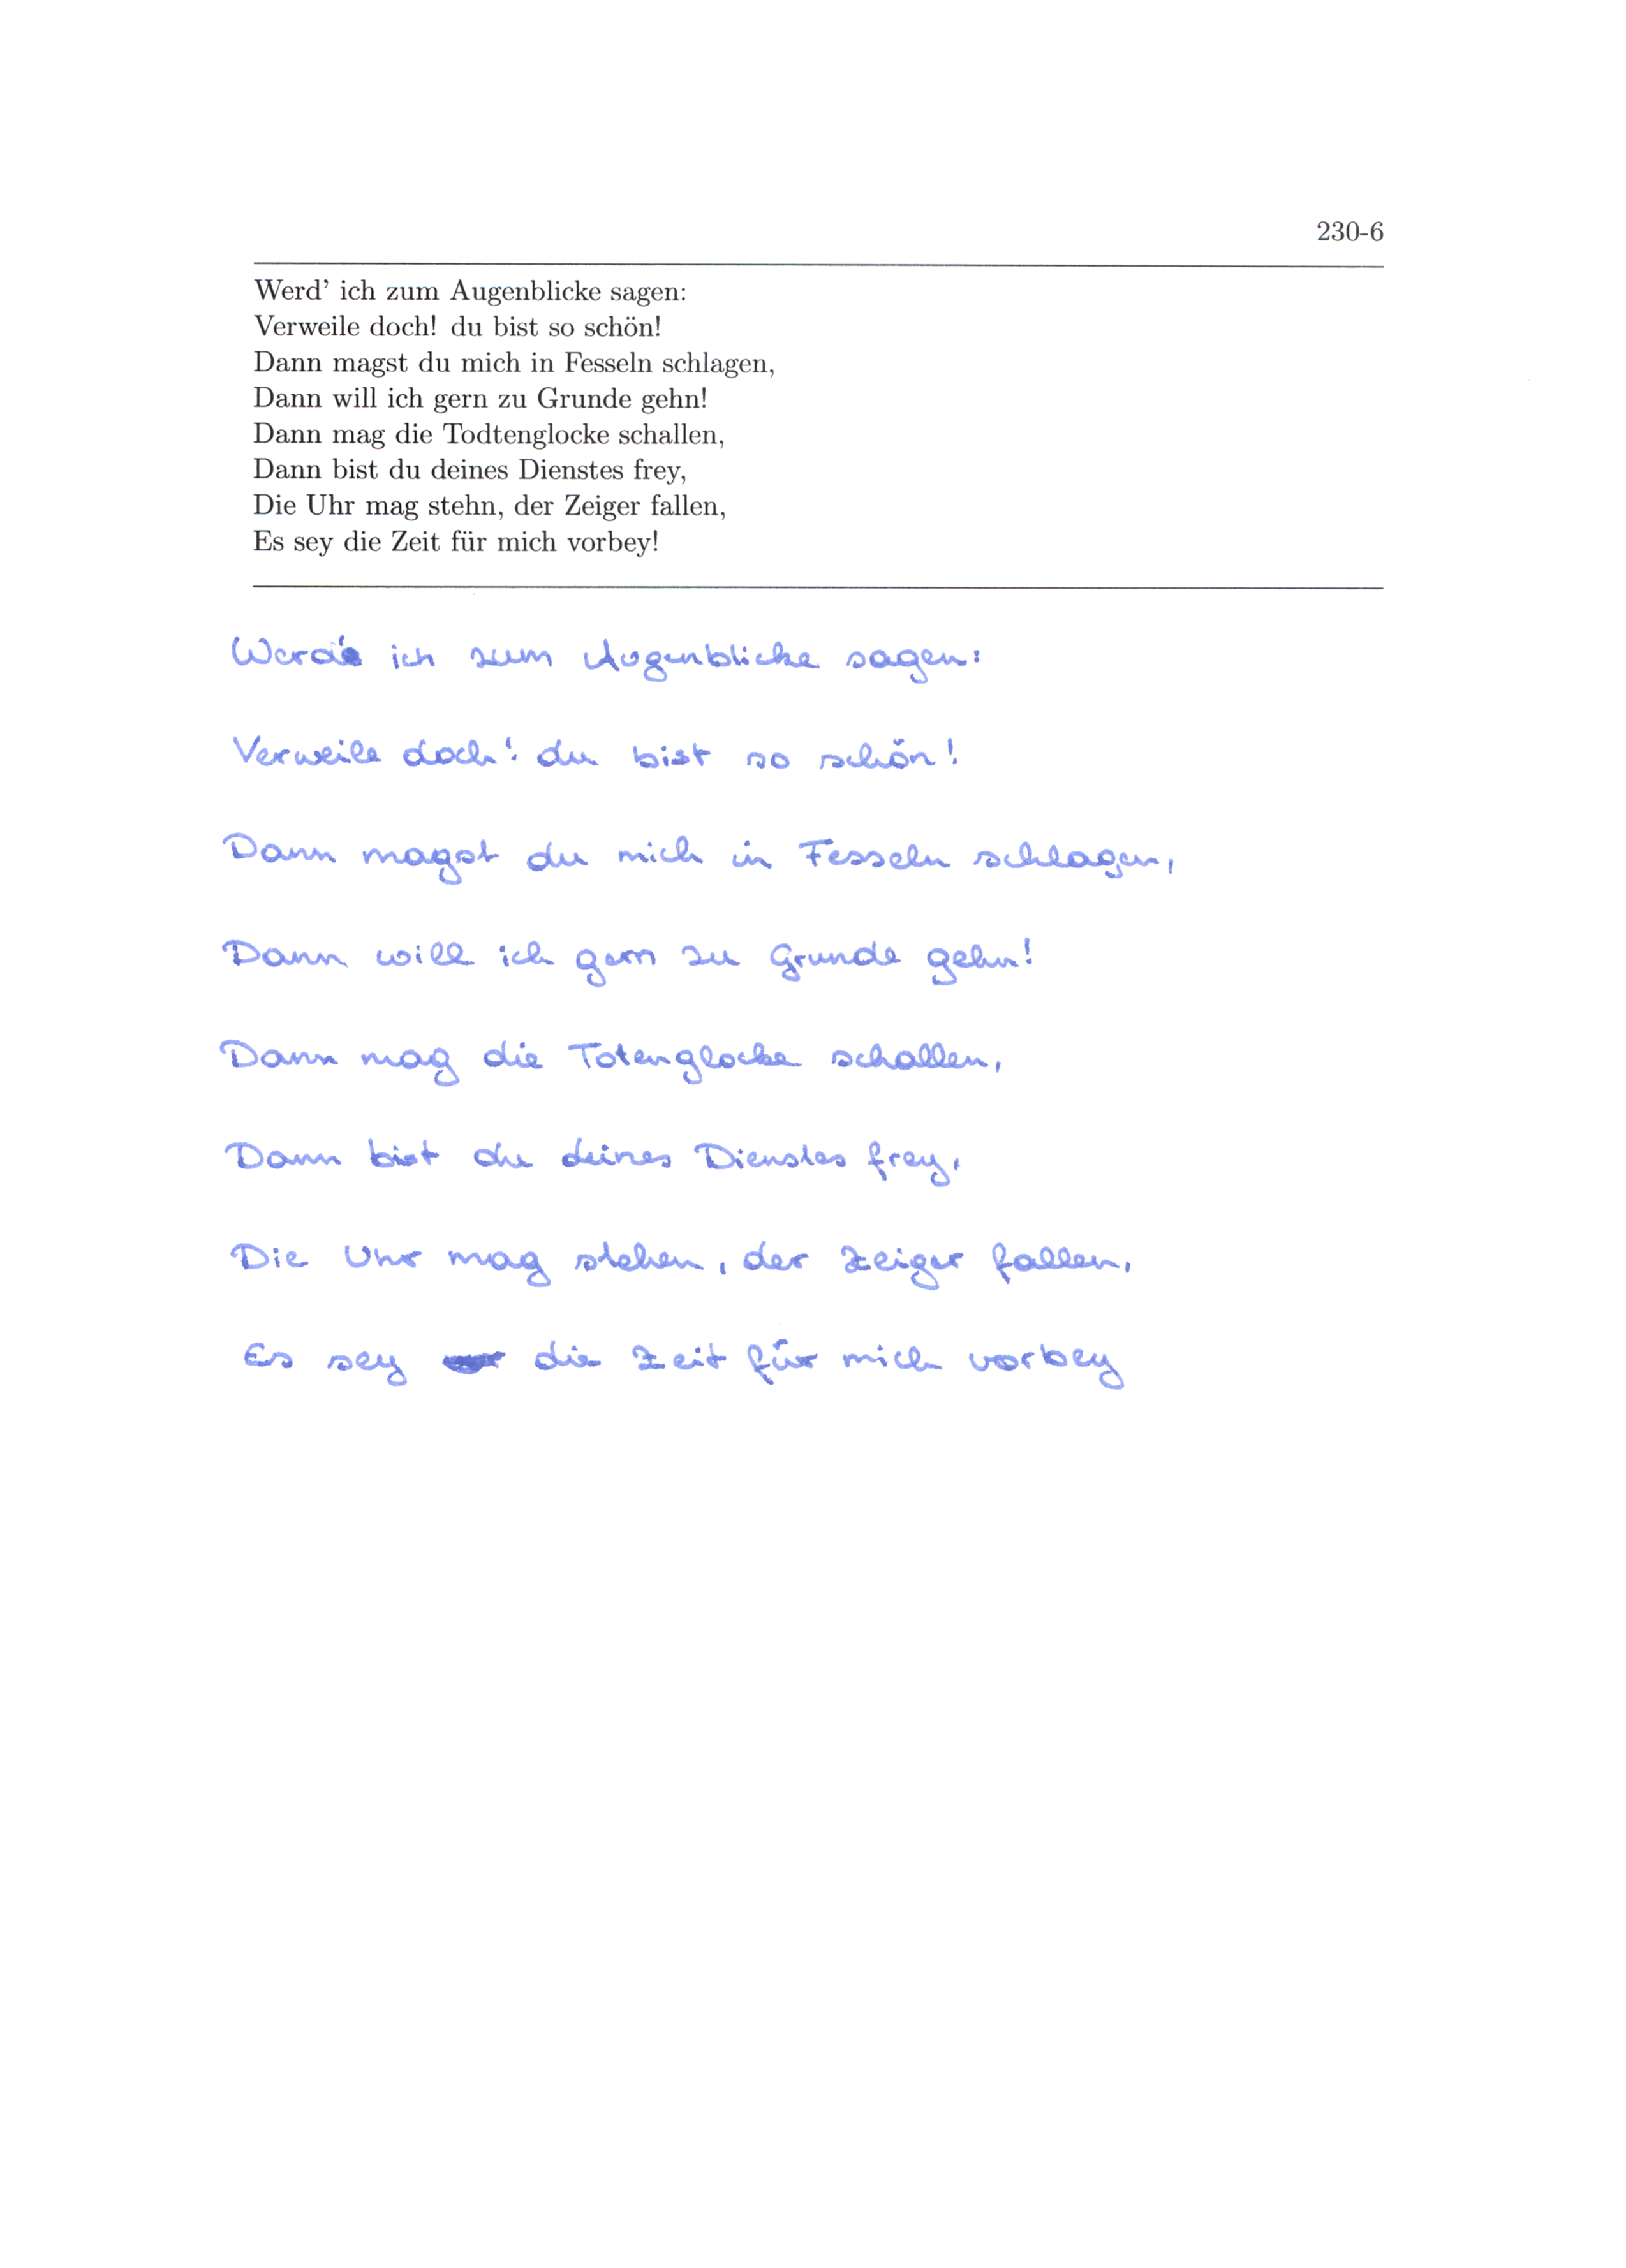 230-6
Werd' ich zum Augenblicke sagen:
Verweile doch! du bist so schön!
Dann magst du mich in Fesseln schlagen,
Dann will ich gern zu Grunde gehn!
Dann mag die Todtenglocke schallen,
Dann bist du deines Dienstes frey,
Die Uhr mag stehn, der Zeiger fallen,
Es sey die Zeit für mich vorbey!
Werd' ich zum Augenblicke sagen:
Verweile doch! du bist so schön!
Dann magst du mich in Fesseln schlagen,
Dann will ich gern zu Grunde gehn!
Dann mag die Totenglocke schallen,
Dann bist du deines Dienstes frey,
Die Uhr mag stehen, der Zeiger fallen,
Es sey die Zeit für mich vorbey